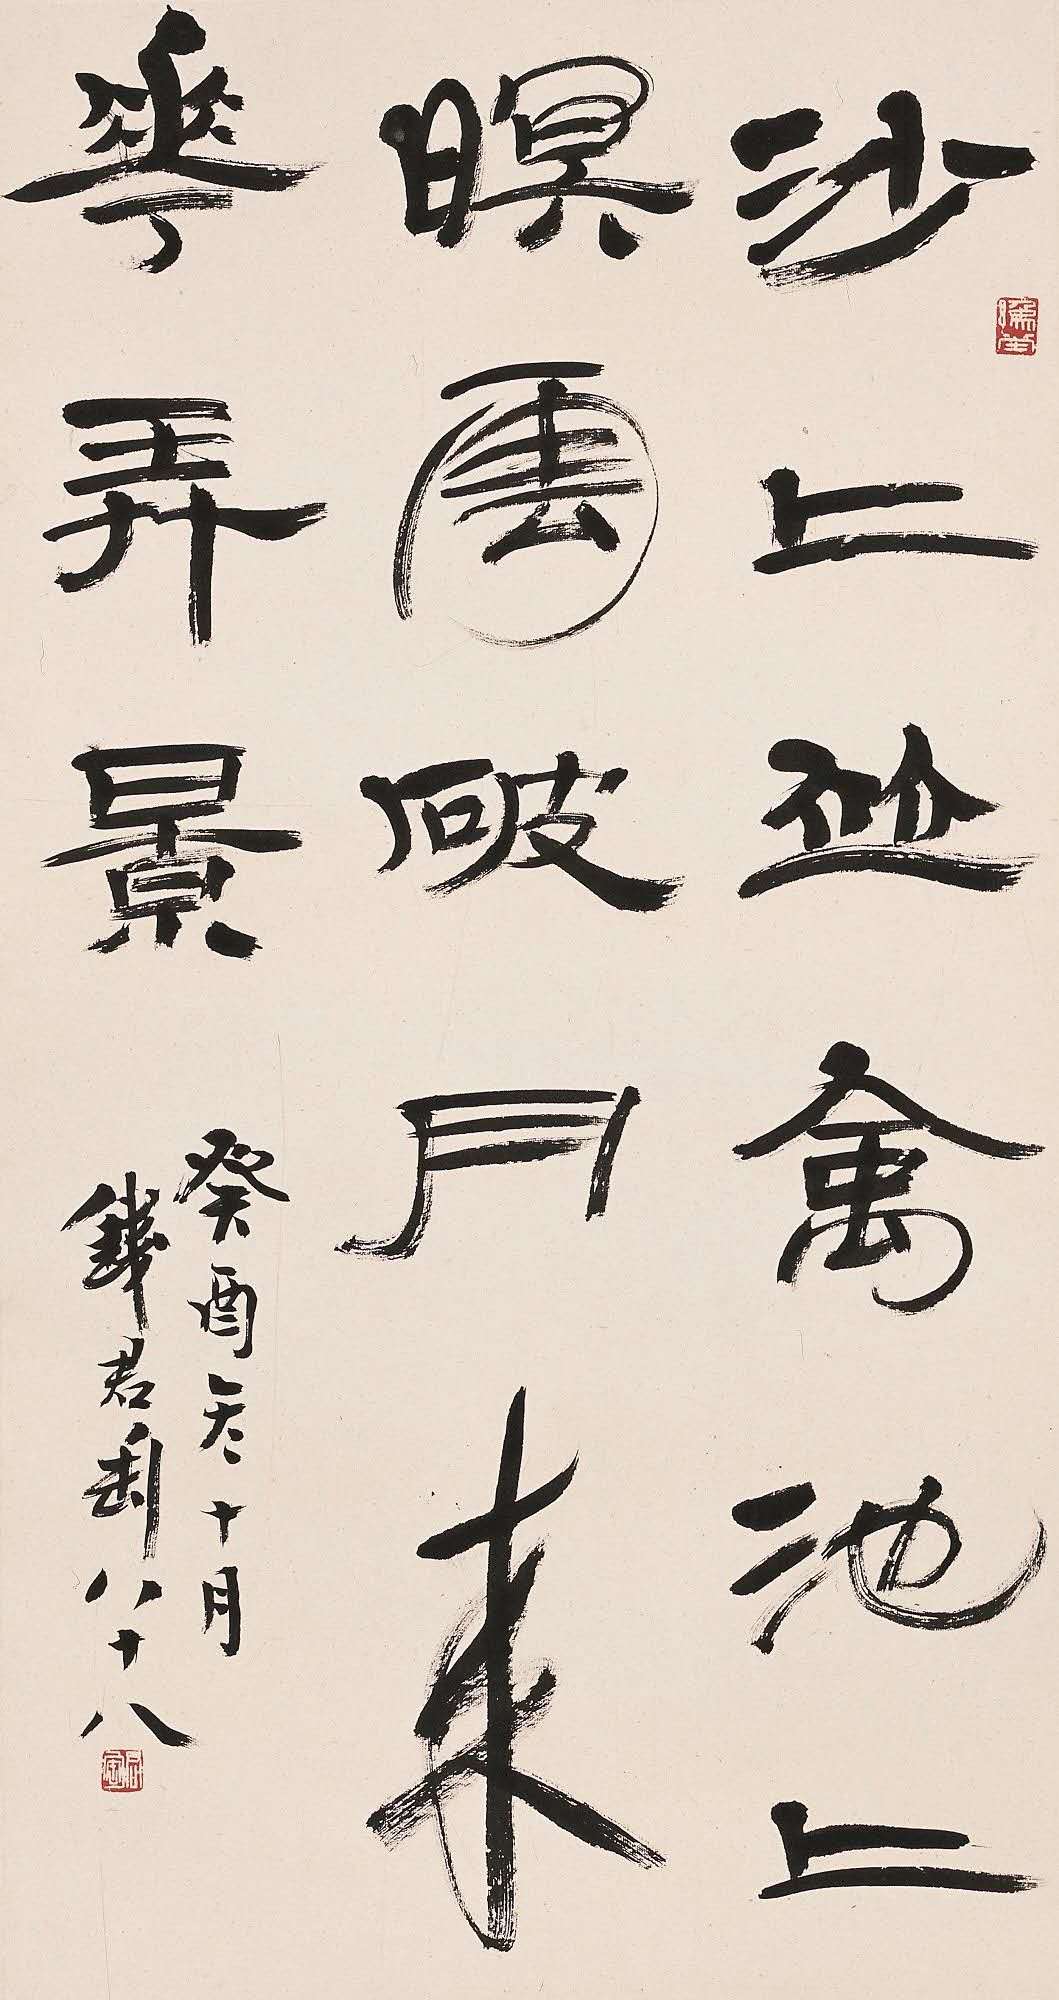 沙上竝禽池上
暝雲破月來
華弄景
癸酉冬十月
錢君匋八十八